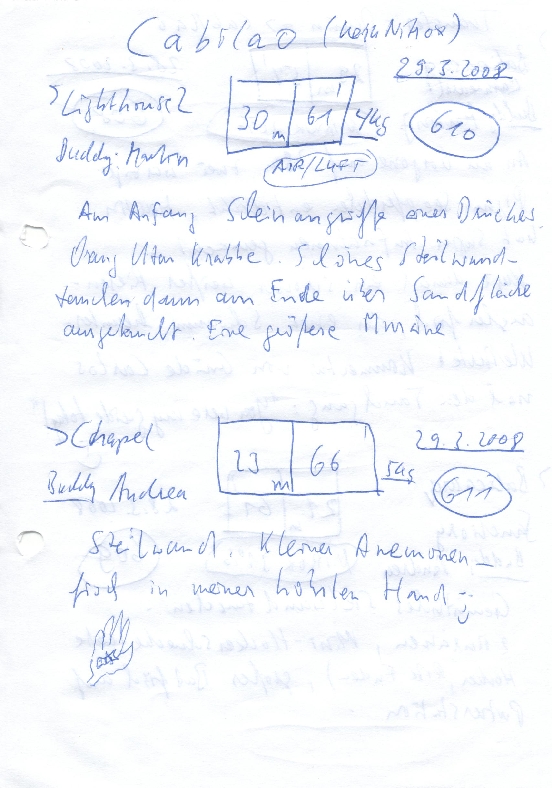 Cabilao (kein Nitrox)
29.3.2008
>Lighthouse 2
30 m 61' 4kg
610
Buddy: Martin
AIR/LUFT
Am Anfang Steinangriffe eines Drückers.
Orang Utan Krabbe. Schönes Steilwand-
tauchen dann am Ende über Sandfläche
ausgetaucht. Eine größere Muräne
>Chapel
29.3.2008
23 m 66' 5kg
611
Buddy Andrea
Steilwand. Kleiner Anemonen-
fisch in meiner hohlen Hand :-)